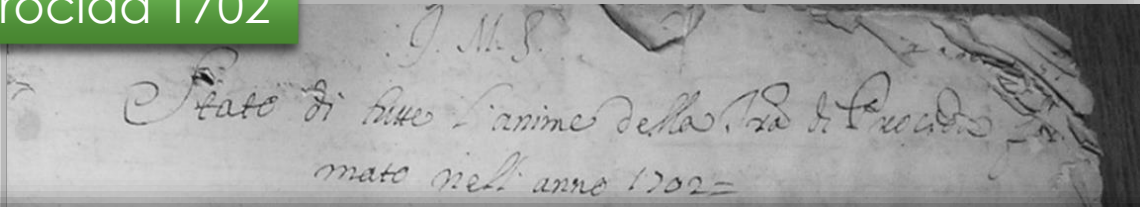 rocida 1702
J. M. J.
Stato di tutte l'anime della Tra di Procida for
mato nell'anno 1702=